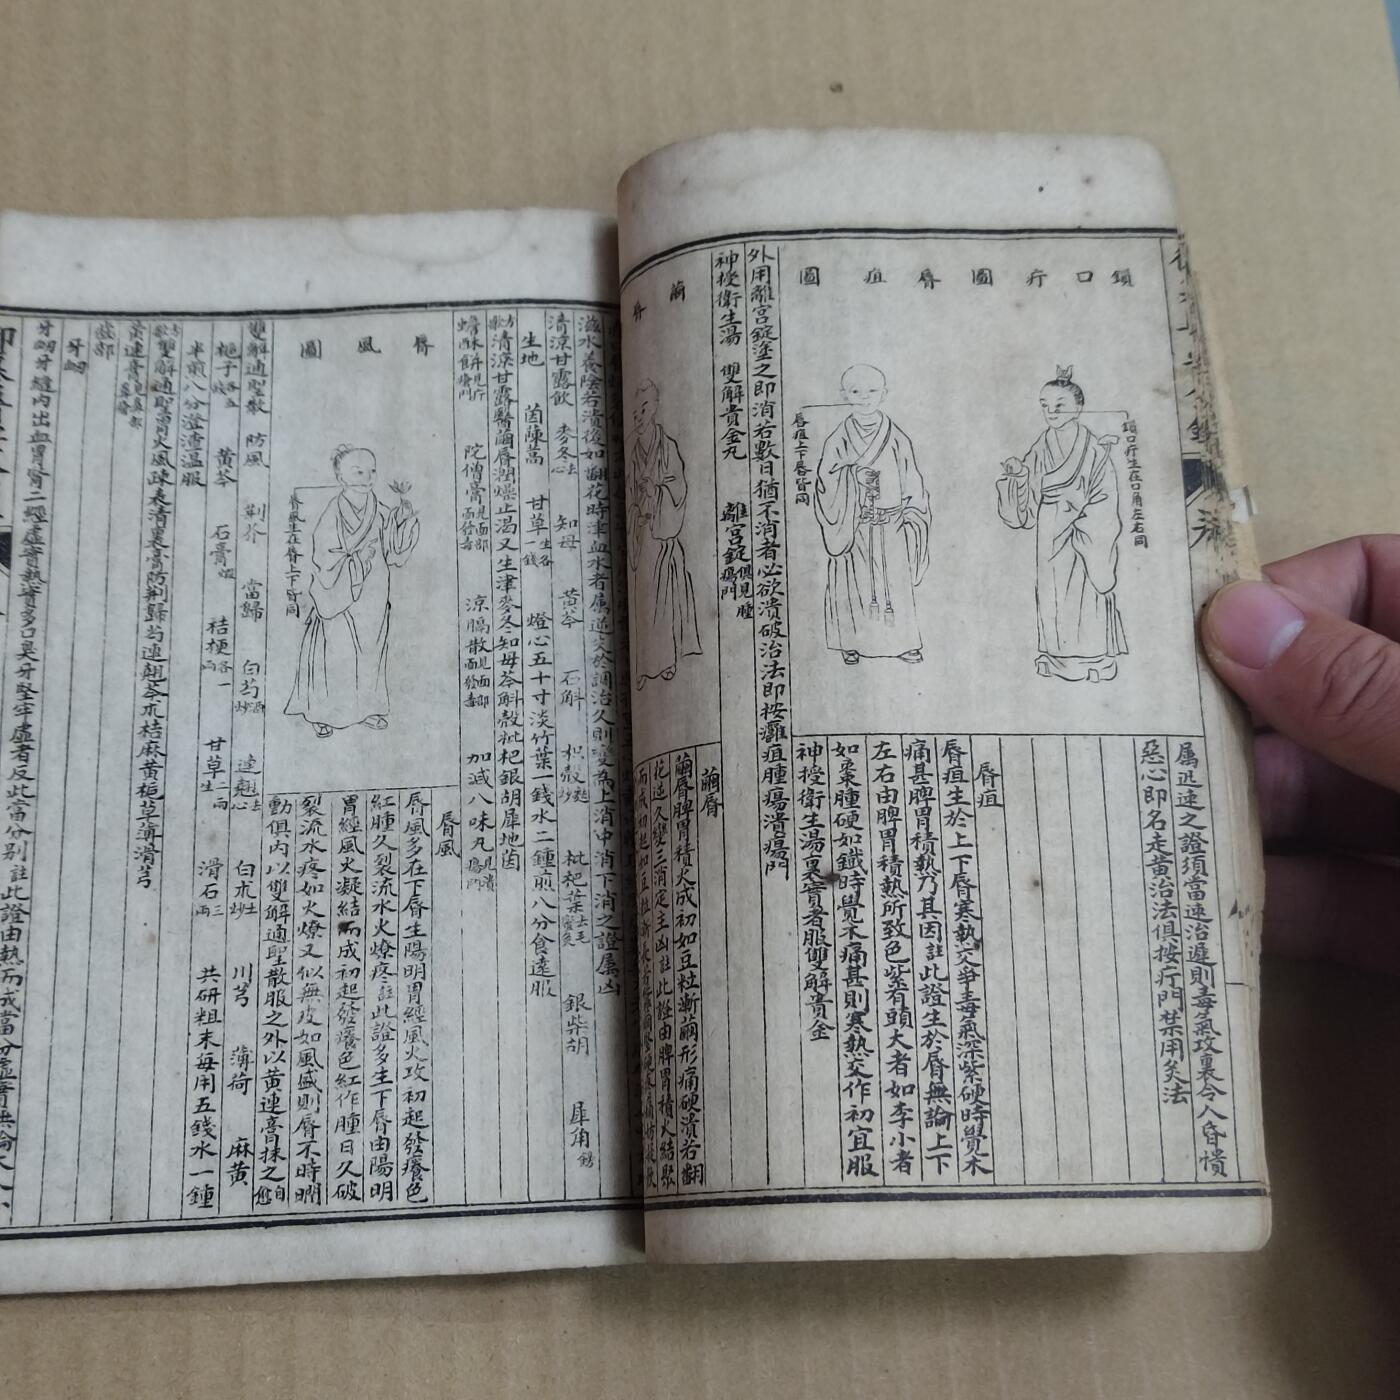 鎖口疔圖
唇疽圖
鎖口疔生在口角左右同
唇疽上下唇皆同
屬迅速之證須當速治遲則毒氣攻裏令人昏憒
惡心即名走黃治法俱按疔門禁用灸法
唇疽
唇疽生於上下唇寒熱交爭毒氣深紫硬時覺木
痛甚脾胃積熱乃其因註此證生於唇無論上下
左右由脾胃積熱所致色紫有頭大者如李小者
如棗腫硬如鐵時覺木痛甚則寒熱交作初宜服
神授衛生湯裏實者服雙解貴金
外用離宮錠塗之即消若數日猶不消者必欲潰破治法即按癰疽腫瘍潰瘍門
神授衛生湯 雙解貴金丸 離宮錠俱見腫瘍門
繭唇
繭唇脾胃積火成初如豆粒漸繭形痛硬潰若翻
花逆久變三消定主凶註此證由脾胃積火結聚
滋水養陰若潰後如翻花時津血水者屬逆失於調治久則變為上消中消下消之證屬凶
清涼甘露飲 麥冬去心 知母 黃芩 石斛 枳殼麩炒 枇杷葉去毛蜜炙 銀柴胡 犀角鎊
生地 茵陳蒿 甘草生各一錢 燈心五十寸淡竹葉一錢水二鍾煎八分食遠服
方歌清涼甘露醫繭唇潤燥止渴又生津麥冬知母芩斛殼枇杷銀胡犀地茵
蟾酥餅見疔瘡門 陀僧膏見面部面發毒 涼膈散見面部面發毒 加減八味丸見潰瘍門
唇風圖
唇風生在唇上下皆同
唇風
唇風多在下唇生陽明胃經風火攻初起發癢色
紅腫久裂流水火燎疼註此證多生下唇由陽明
胃經風火凝結而成初起發癢色紅作腫日久破
裂流水疼如火燎又似無皮如風盛則唇不時瞤
動俱內以雙解通聖散服之外以黃連膏抹之自愈
雙解通聖散 防風 荊芥 當歸 白芍酒炒 連翹去心 白朮土炒 川芎 薄荷 麻黃
梔子各五錢 黃芩 石膏煅 桔梗各一兩 甘草生二兩 滑石三兩 共研粗末每用五錢水一鍾
半煎八分澄渣溫服
方歌雙解通聖胃火風疎表清裏膏防荊歸芎連翹芩朮桔麻黃梔草薄滑芎
黃連膏見鼻部鼻瘡
齒部
牙衄
牙衄牙縫內出血胃腎二經虛實熱實多口臭牙堅牢虛者反此當分別註此證由熱而成當分虛實